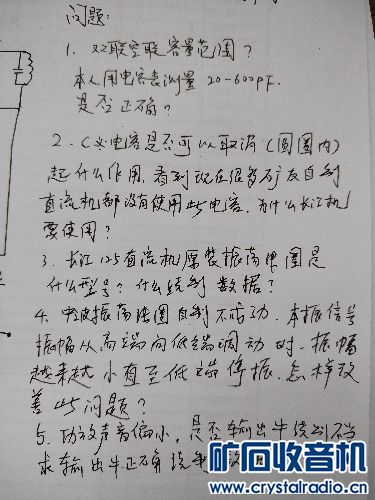 问题:
1. 双联空联容量范围?
本人用电容表测量20-600PF.
是否正确?
2. C义电容是否可以取消(圆圈内)
起什么作用, 看到现在很多矿友自制
直流机都没有使用此电容, 为什么长江机
要使用?
3. 长江125直流机原装振荡线圈是
什么型号? 什么绕制数据?
4. 中波振荡线圈自制不成功. 本振信号
振幅从高端向低端调动时. 振幅
越来越小直至低端停振. 怎样改
善此问题?
5. 功放声音偏小, 是否输出牛绕制不当
求输出牛正确绕制
矿石收音机
www.crystalradio.cn